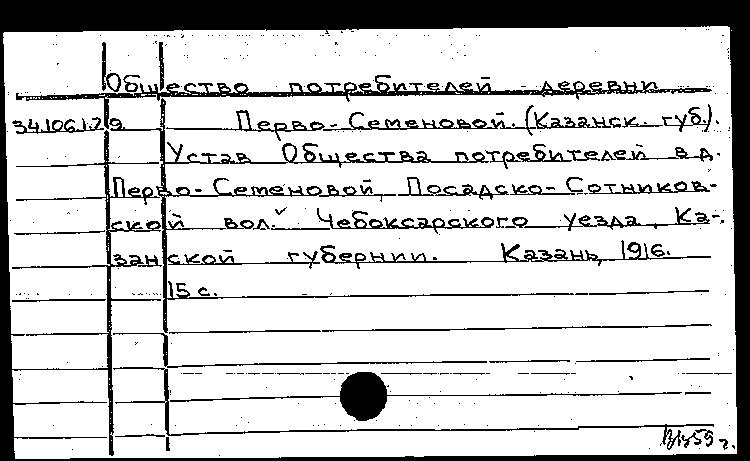 Общество потребителей деревни
34.106.1.29 Перво-Семеновой. (Казанск. губ.).
Устав Общества потребителей в д.
Перво-Семеновой, Посадско-Сотников-
ской вол. Чебоксарского уезда, Ка-
занской губернии. Казань, 1916.
15 с.